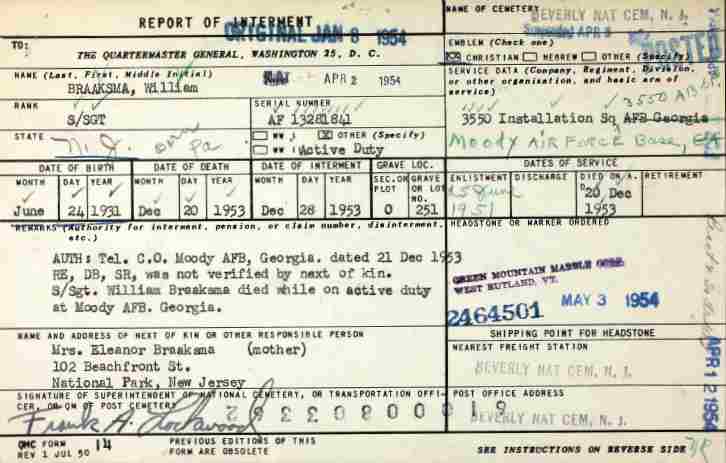 REPORT OF INTERMENT
ORIGINAL JAN 8 1954
NAME OF CEMETERY
BEVERLY NAT CEM, N. J.
Suspended APR
POSTED
TO:
THE QUARTERMASTER GENERAL, WASHINGTON 25, D. C.
EMBLEM (Check one)
CHRISTIAN HEBREW OTHER (Specify)
NAME (Last, First, Middle Initial)
BRAAKSMA, William
APR 2 1954
SERVICE DATA (Company, Regiment, Division, or other organisation, and basic arm of service)
3550 AB
3550 Installation Sq AFB Georgia
Moody AIR FORCE Base, GA
RANK
S/SGT
SERIAL NUMBER
AF 13281841
STATE
N. J. Pa
WW I OTHER (Specify)
WW II Active Duty
DATE OF BIRTH
DATE OF DEATH
DATE OF INTERMENT
GRAVE LOC.
DATES OF SERVICE
MONTH DAY YEAR MONTH DAY YEAR MONTH DAY YEAR SEC. OR PLOT GRAVE OR LOT NO.
ENLISTMENT DISCHARGE DIED ON A. D. RETIREMENT
June 24 1931 Dec 20 1953 Dec 28 1953 O 251
15 June 1951
20 Dec 1953
REMARKS (Authority for interment, pension, or claim number, disinterment, etc.)
AUTH: Tel. C.O. Moody AFB, Georgia. dated 21 Dec 1953
RE, DB, SR, was not verified by next of kin.
S/Sgt. William Braaksma died while on active duty
at Moody AFB. Georgia.
HEADSTONE OR MARKER ORDERED
GREEN MOUNTAIN MARBLE CORP.
WEST RUTLAND, VT.
2464501 MAY 3 1954
NAME AND ADDRESS OF NEXT OF KIN OR OTHER RESPONSIBLE PERSON
Mrs. Eleanor Braaksma (mother)
102 Beachfront St.
National Park, New Jersey
SHIPPING POINT FOR HEADSTONE
NEAREST FREIGHT STATION
BEVERLY NAT CEM, N. J.
APR 12 1954
SIGNATURE OF SUPERINTENDENT OF NATIONAL CEMETERY, OR TRANSPORTATION OFFICER, OR QM OF POST CEMETERY
Frank H. Lockwood
POST OFFICE ADDRESS
BEVERLY NAT CEM, N. J.
QMC FORM 14
REV 1 JUL 50
PREVIOUS EDITIONS OF THIS
FORM ARE OBSOLETE
SEE INSTRUCTIONS ON REVERSE SIDE